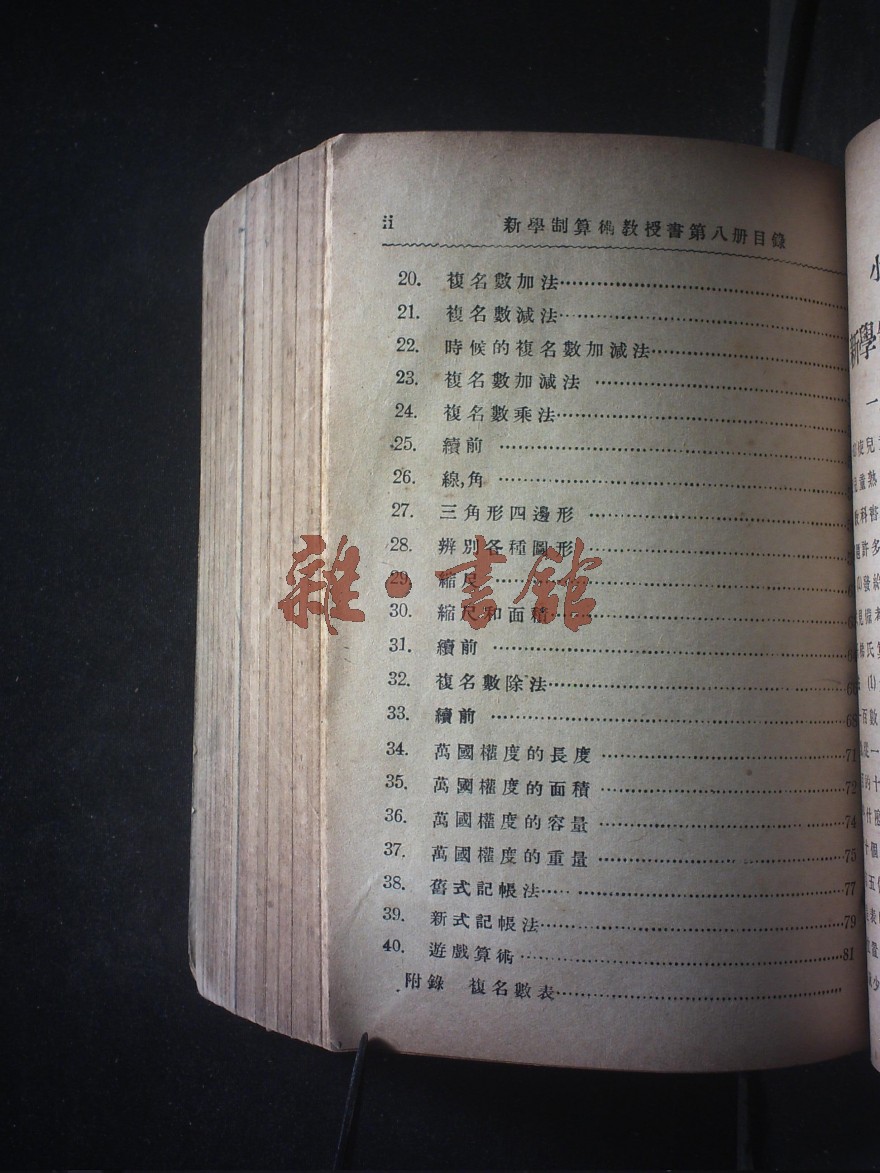 ii 新學制算術教授書第八册目錄
20. 複名數加法
21. 複名數減法
22. 時候的複名數加減法
23. 複名數加減法
24. 複名數乘法
25. 續前
26. 線,角
27. 三角形四邊形
28. 辨別各種圖形
29. 縮尺
30. 縮尺和面積
31. 續前
32. 複名數除法
33. 續前
34. 萬國權度的長度 71
35. 萬國權度的面積 72
36. 萬國權度的容量 74
37. 萬國權度的重量 75
38. 舊式記帳法 77
39. 新式記帳法 79
40. 遊戲算術 81
附錄 複名數表
雜·書館